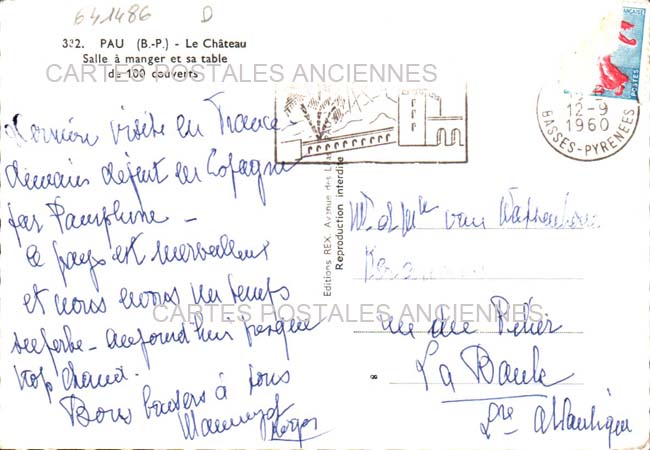 641486 D
332. PAU (B.-P.) - Le Château
Salle à manger et sa table
de 100 couverts
CARTES POSTALES ANCIENNES
POSTES
12-9
1960
BASSES-PYRENEES
Editions REX, Avenue des
Reproduction interdite
Dernière visite en France -
demain départ en Espagne
par Pampelune -
Le pays est merveilleux
et nous avons un temps
superbe - aujourd'hui presque
trop chaud.
Bons baisers à tous
Roger
Mr et Mme van
rue du
La Baule
Lre Atlantique
CARTES POSTALES ANCIENNES